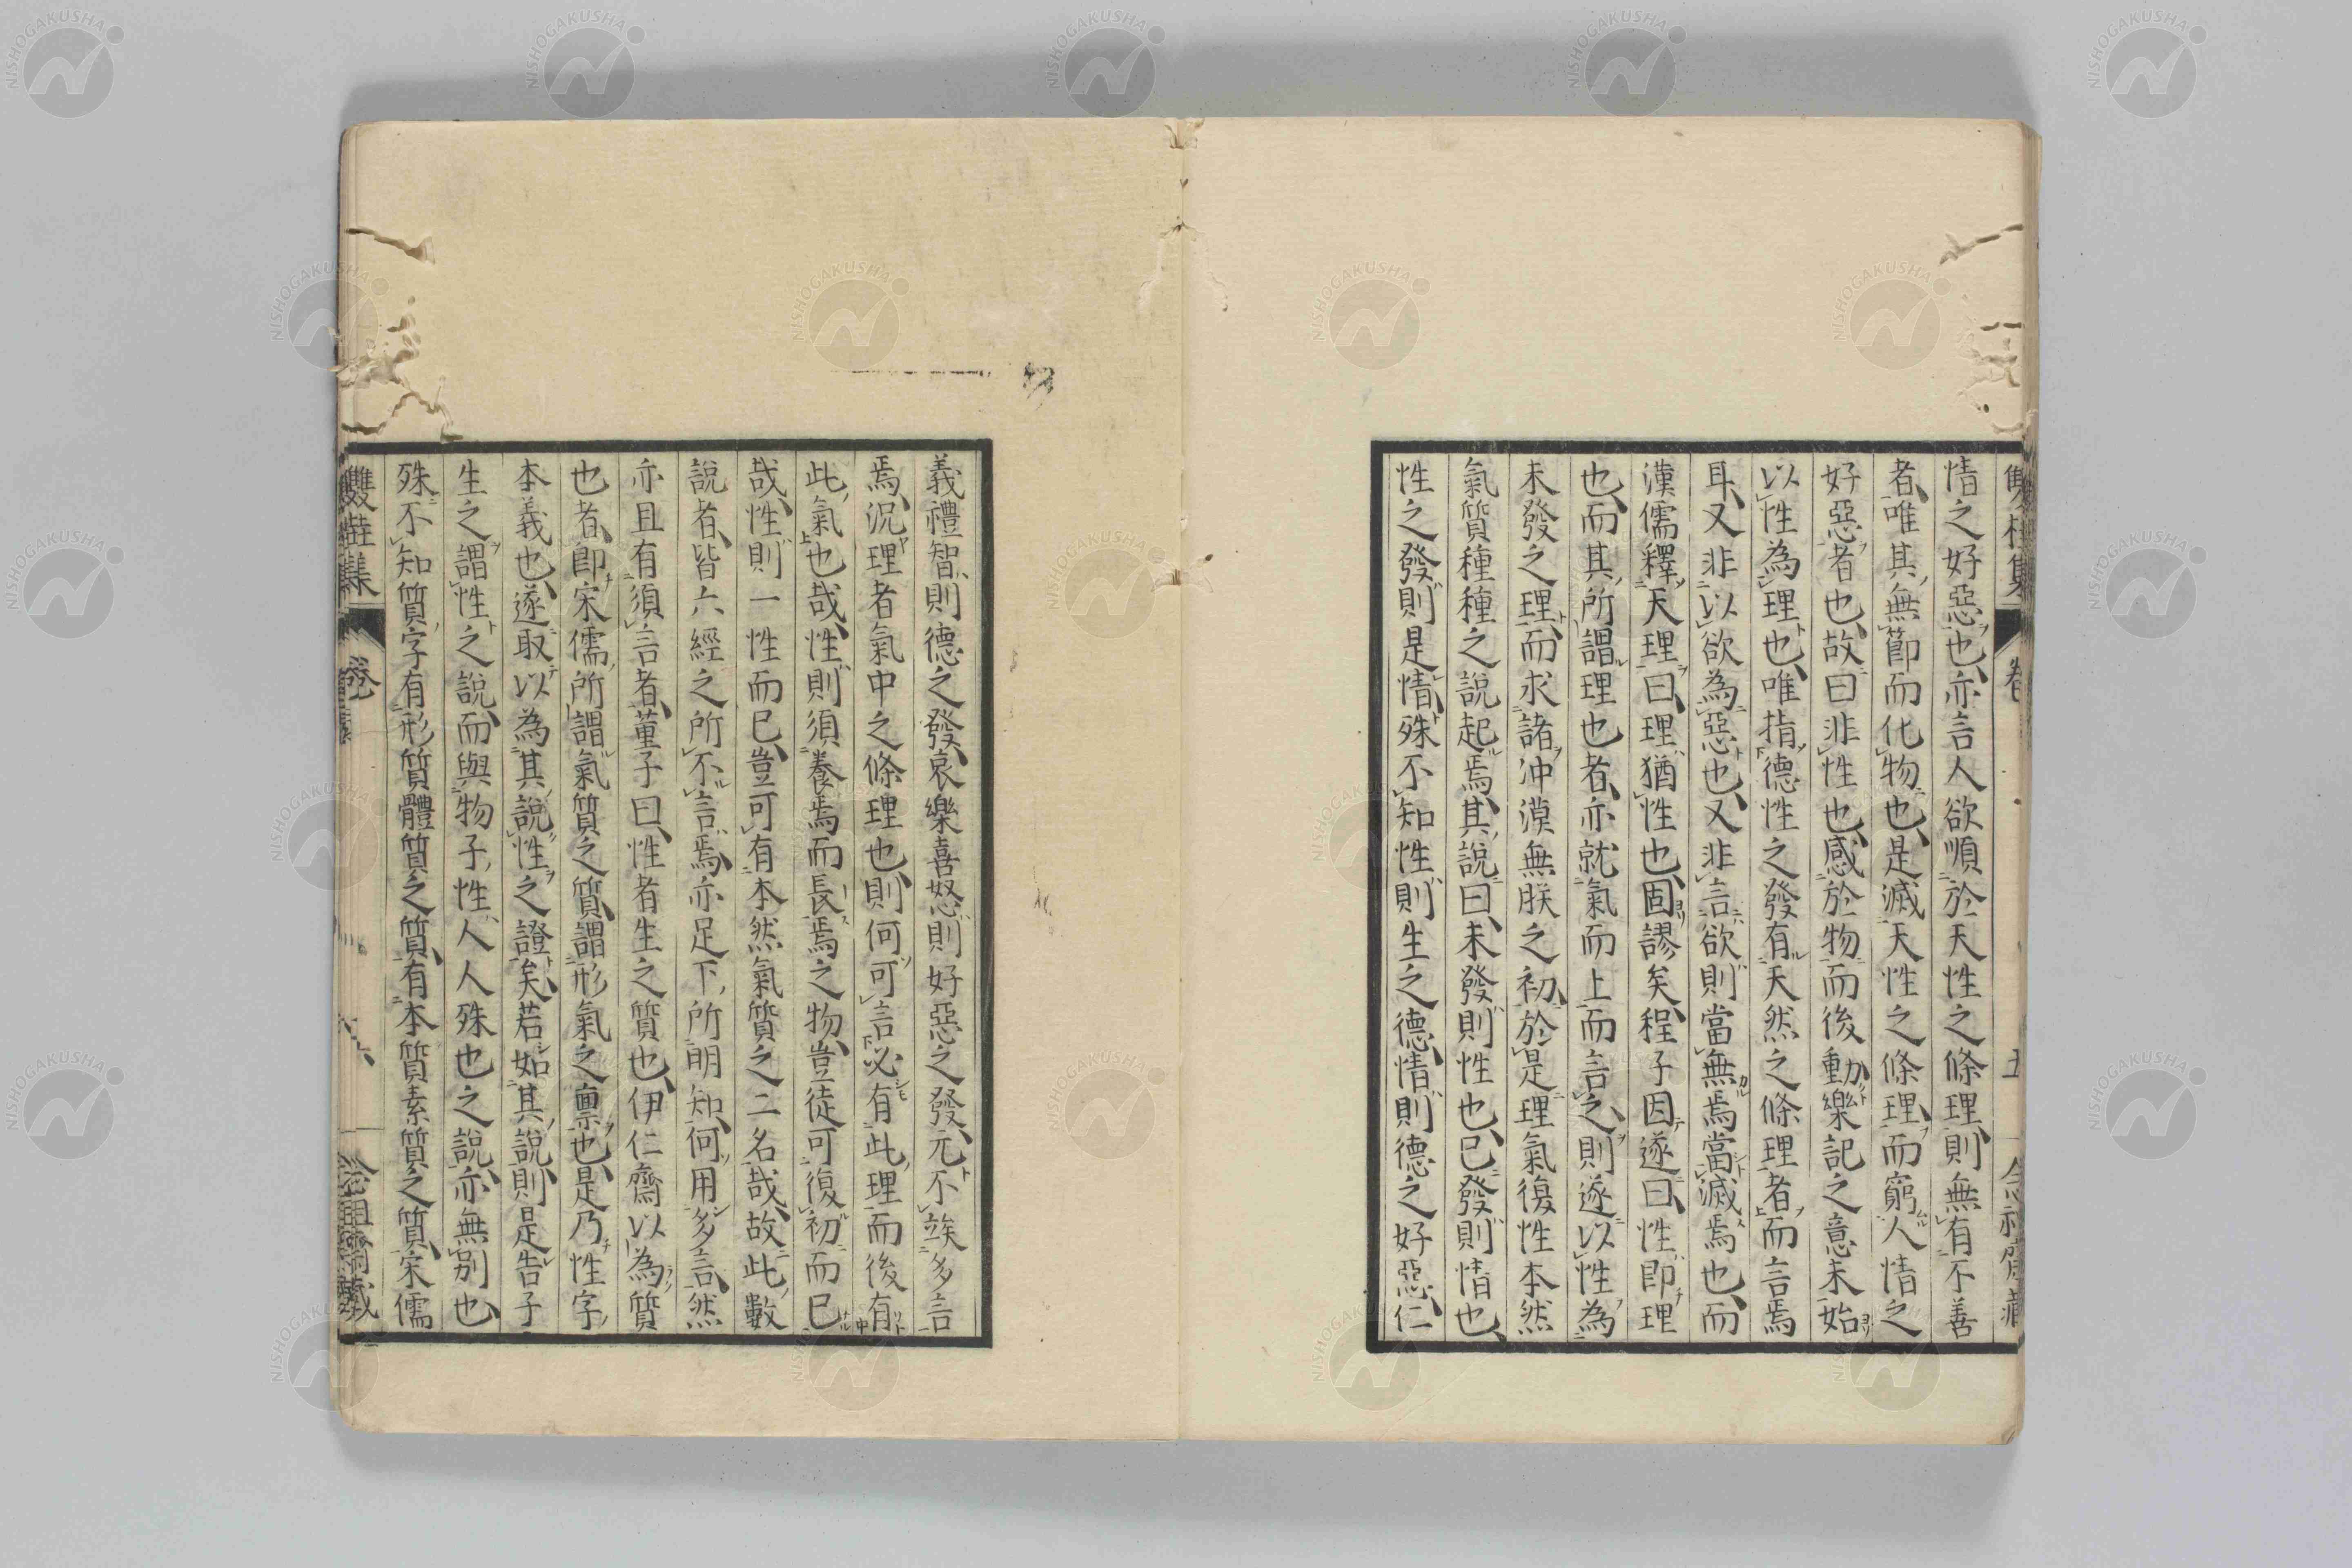 情之好惡也亦言人欲順於天性之條理則無有不善
者唯其無節而化物也是滅天性之條理而窮人情之
好惡者也故曰非性也感於物而後動樂記之意未始
以性為理也唯指德性之發有天然之條理者而言焉
耳又非以欲為惡也又非言欲則當無焉當滅焉也而
漢儒釋天理曰理猶性也固謬矣程子因遂曰性即理
也而其所謂理也者亦就氣而上而言之則遂以性為
未發之理而求諸冲漠無朕之初於是理氣復性本然
氣質種種之說起焉其說曰未發則性也已發則情也
性之發則是情殊不知性則生之德情則德之好惡仁
義禮智則德之發哀樂喜怒則好惡之發元不竢多言
焉況理者氣中之條理也則何可言必有此理而後有
此氣也哉性則須養焉而長焉之物豈徒可復初而已
哉性則一性而已豈可有本然氣質之二名哉故此數
說者皆六經之所不言焉亦足下所明知何用多言然
亦且有須言者董子曰性者生之質也伊仁齋以為質
也者即宋儒所謂氣質之質謂形氣之禀也是乃性字
本義也遂取以為其說性之證矣若如其說則是告子
生之謂性之說而與物子性人人殊也之說亦無別也
殊不知質字有形質體質之質有本質素質之質宋儒